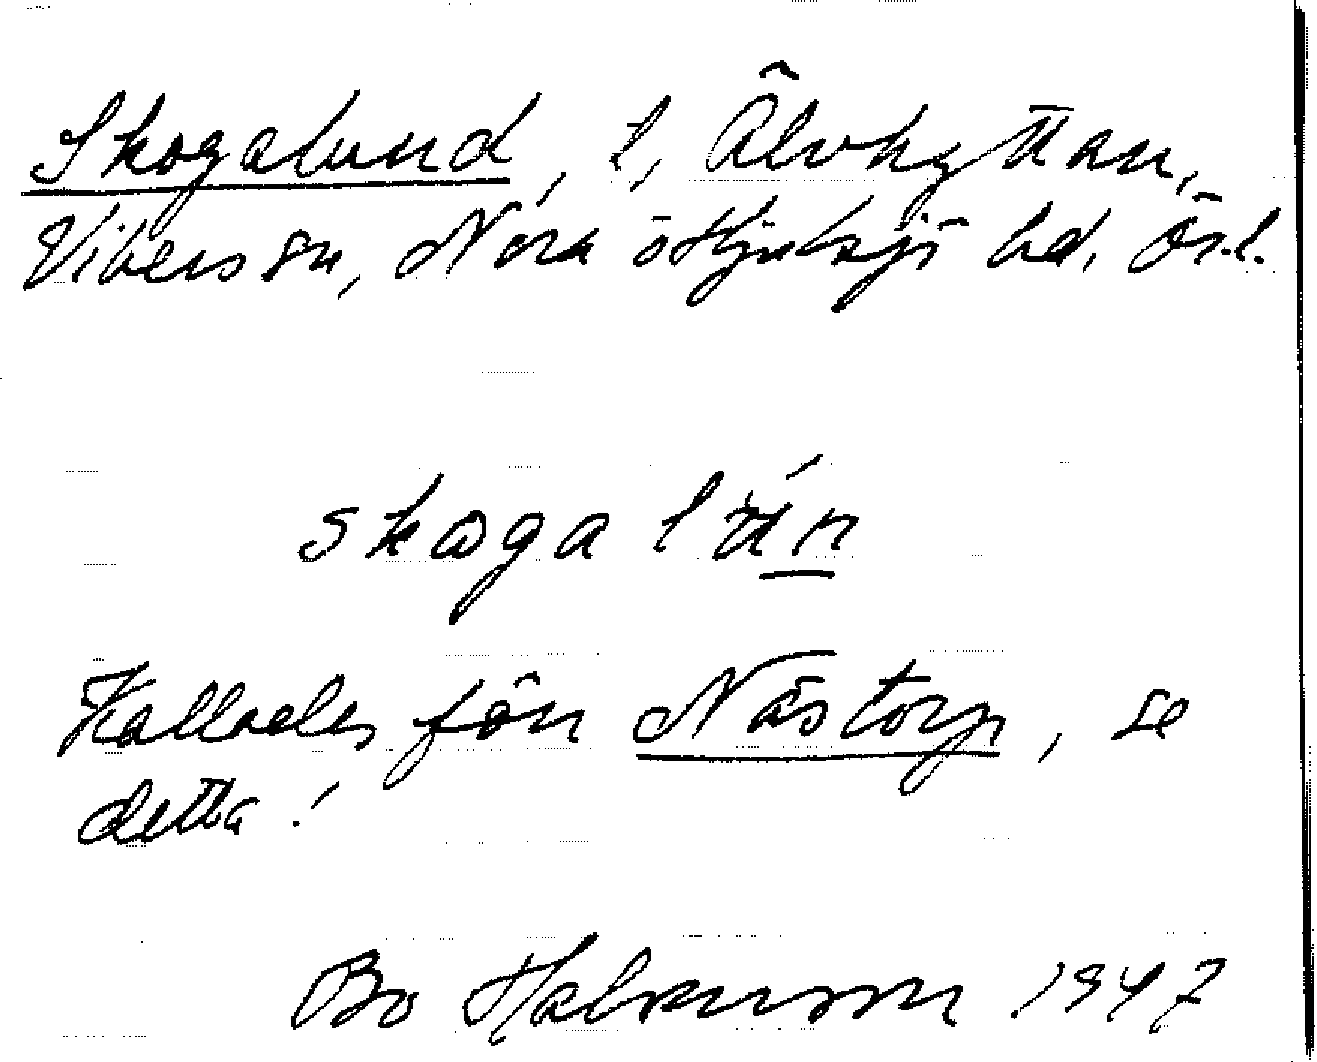 Skogalund, l, Älvhyttan,
Vibers sn, Nora o Hjulsjö bd, Ör.l.
skoga lún
Kallades förr Nästorp, se
detta!
Bo 1947